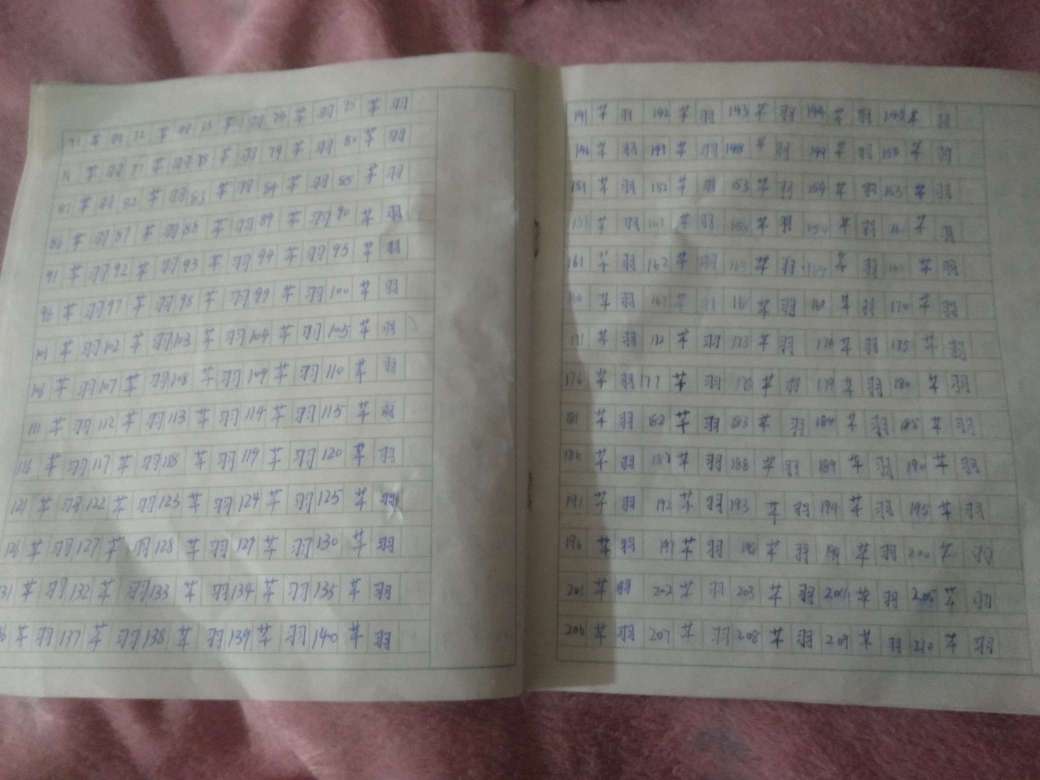 71 芊 羽 72 芊 羽 73 芊 羽 74 芊 羽 75 芊 羽
76 芊 羽 77 芊 羽 78 芊 羽 79 芊 羽 80 芊 羽
81 芊 羽 82 芊 羽 83 芊 羽 84 芊 羽 85 芊 羽
86 芊 羽 87 芊 羽 88 芊 羽 89 芊 羽 90 芊 羽
91 芊 羽 92 芊 羽 93 芊 羽 94 芊 羽 95 芊 羽
96 芊 羽 97 芊 羽 98 芊 羽 99 芊 羽 100 芊 羽
101 芊 羽 102 芊 羽 103 芊 羽 104 芊 羽 105 芊 羽
106 芊 羽 107 芊 羽 108 芊 羽 109 芊 羽 110 芊 羽
111 芊 羽 112 芊 羽 113 芊 羽 114 芊 羽 115 芊 羽
116 芊 羽 117 芊 羽 118 芊 羽 119 芊 羽 120 芊 羽
121 芊 羽 122 芊 羽 123 芊 羽 124 芊 羽 125 芊 羽
126 芊 羽 127 芊 羽 128 芊 羽 129 芊 羽 130 芊 羽
131 芊 羽 132 芊 羽 133 芊 羽 134 芊 羽 135 芊 羽
136 芊 羽 137 芊 羽 138 芊 羽 139 芊 羽 140 芊 羽
141 芊 羽 142 芊 羽 143 芊 羽 144 芊 羽 145 芊 羽
146 芊 羽 147 芊 羽 148 芊 羽 149 芊 羽 150 芊 羽
151 芊 羽 152 芊 羽 153 芊 羽 154 芊 羽 155 芊 羽
芊 羽 157 芊 羽 158 芊 羽 159 芊 羽 160 芊 羽
161 芊 羽 162 芊 羽 163 芊 羽 164 芊 羽 165 芊 羽
166 芊 羽 167 芊 羽 168 芊 羽 169 芊 羽 170 芊 羽
171 芊 羽 172 芊 羽 173 芊 羽 174 芊 羽 175 芊 羽
176 芊 羽 177 芊 羽 178 芊 羽 179 芊 羽 180 芊 羽
181 芊 羽 182 芊 羽 183 芊 羽 184 芊 羽 185 芊 羽
186 芊 羽 187 芊 羽 188 芊 羽 189 芊 羽 190 芊 羽
191 芊 羽 192 芊 羽 193 芊 羽 194 芊 羽 195 芊 羽
196 芊 羽 197 芊 羽 198 芊 羽 199 芊 羽 200 芊 羽
201 芊 羽 202 芊 羽 203 芊 羽 204 芊 羽 205 芊 羽
206 芊 羽 207 芊 羽 208 芊 羽 209 芊 羽 210 芊 羽